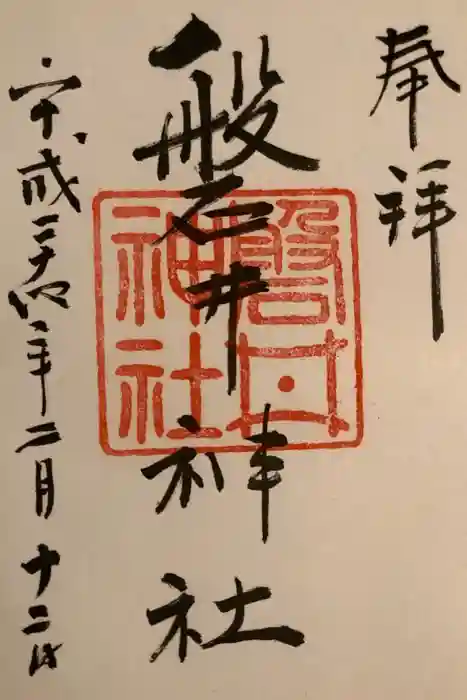 奉拝
磐石井神社
磐井神社
平成二十四年二月十二日